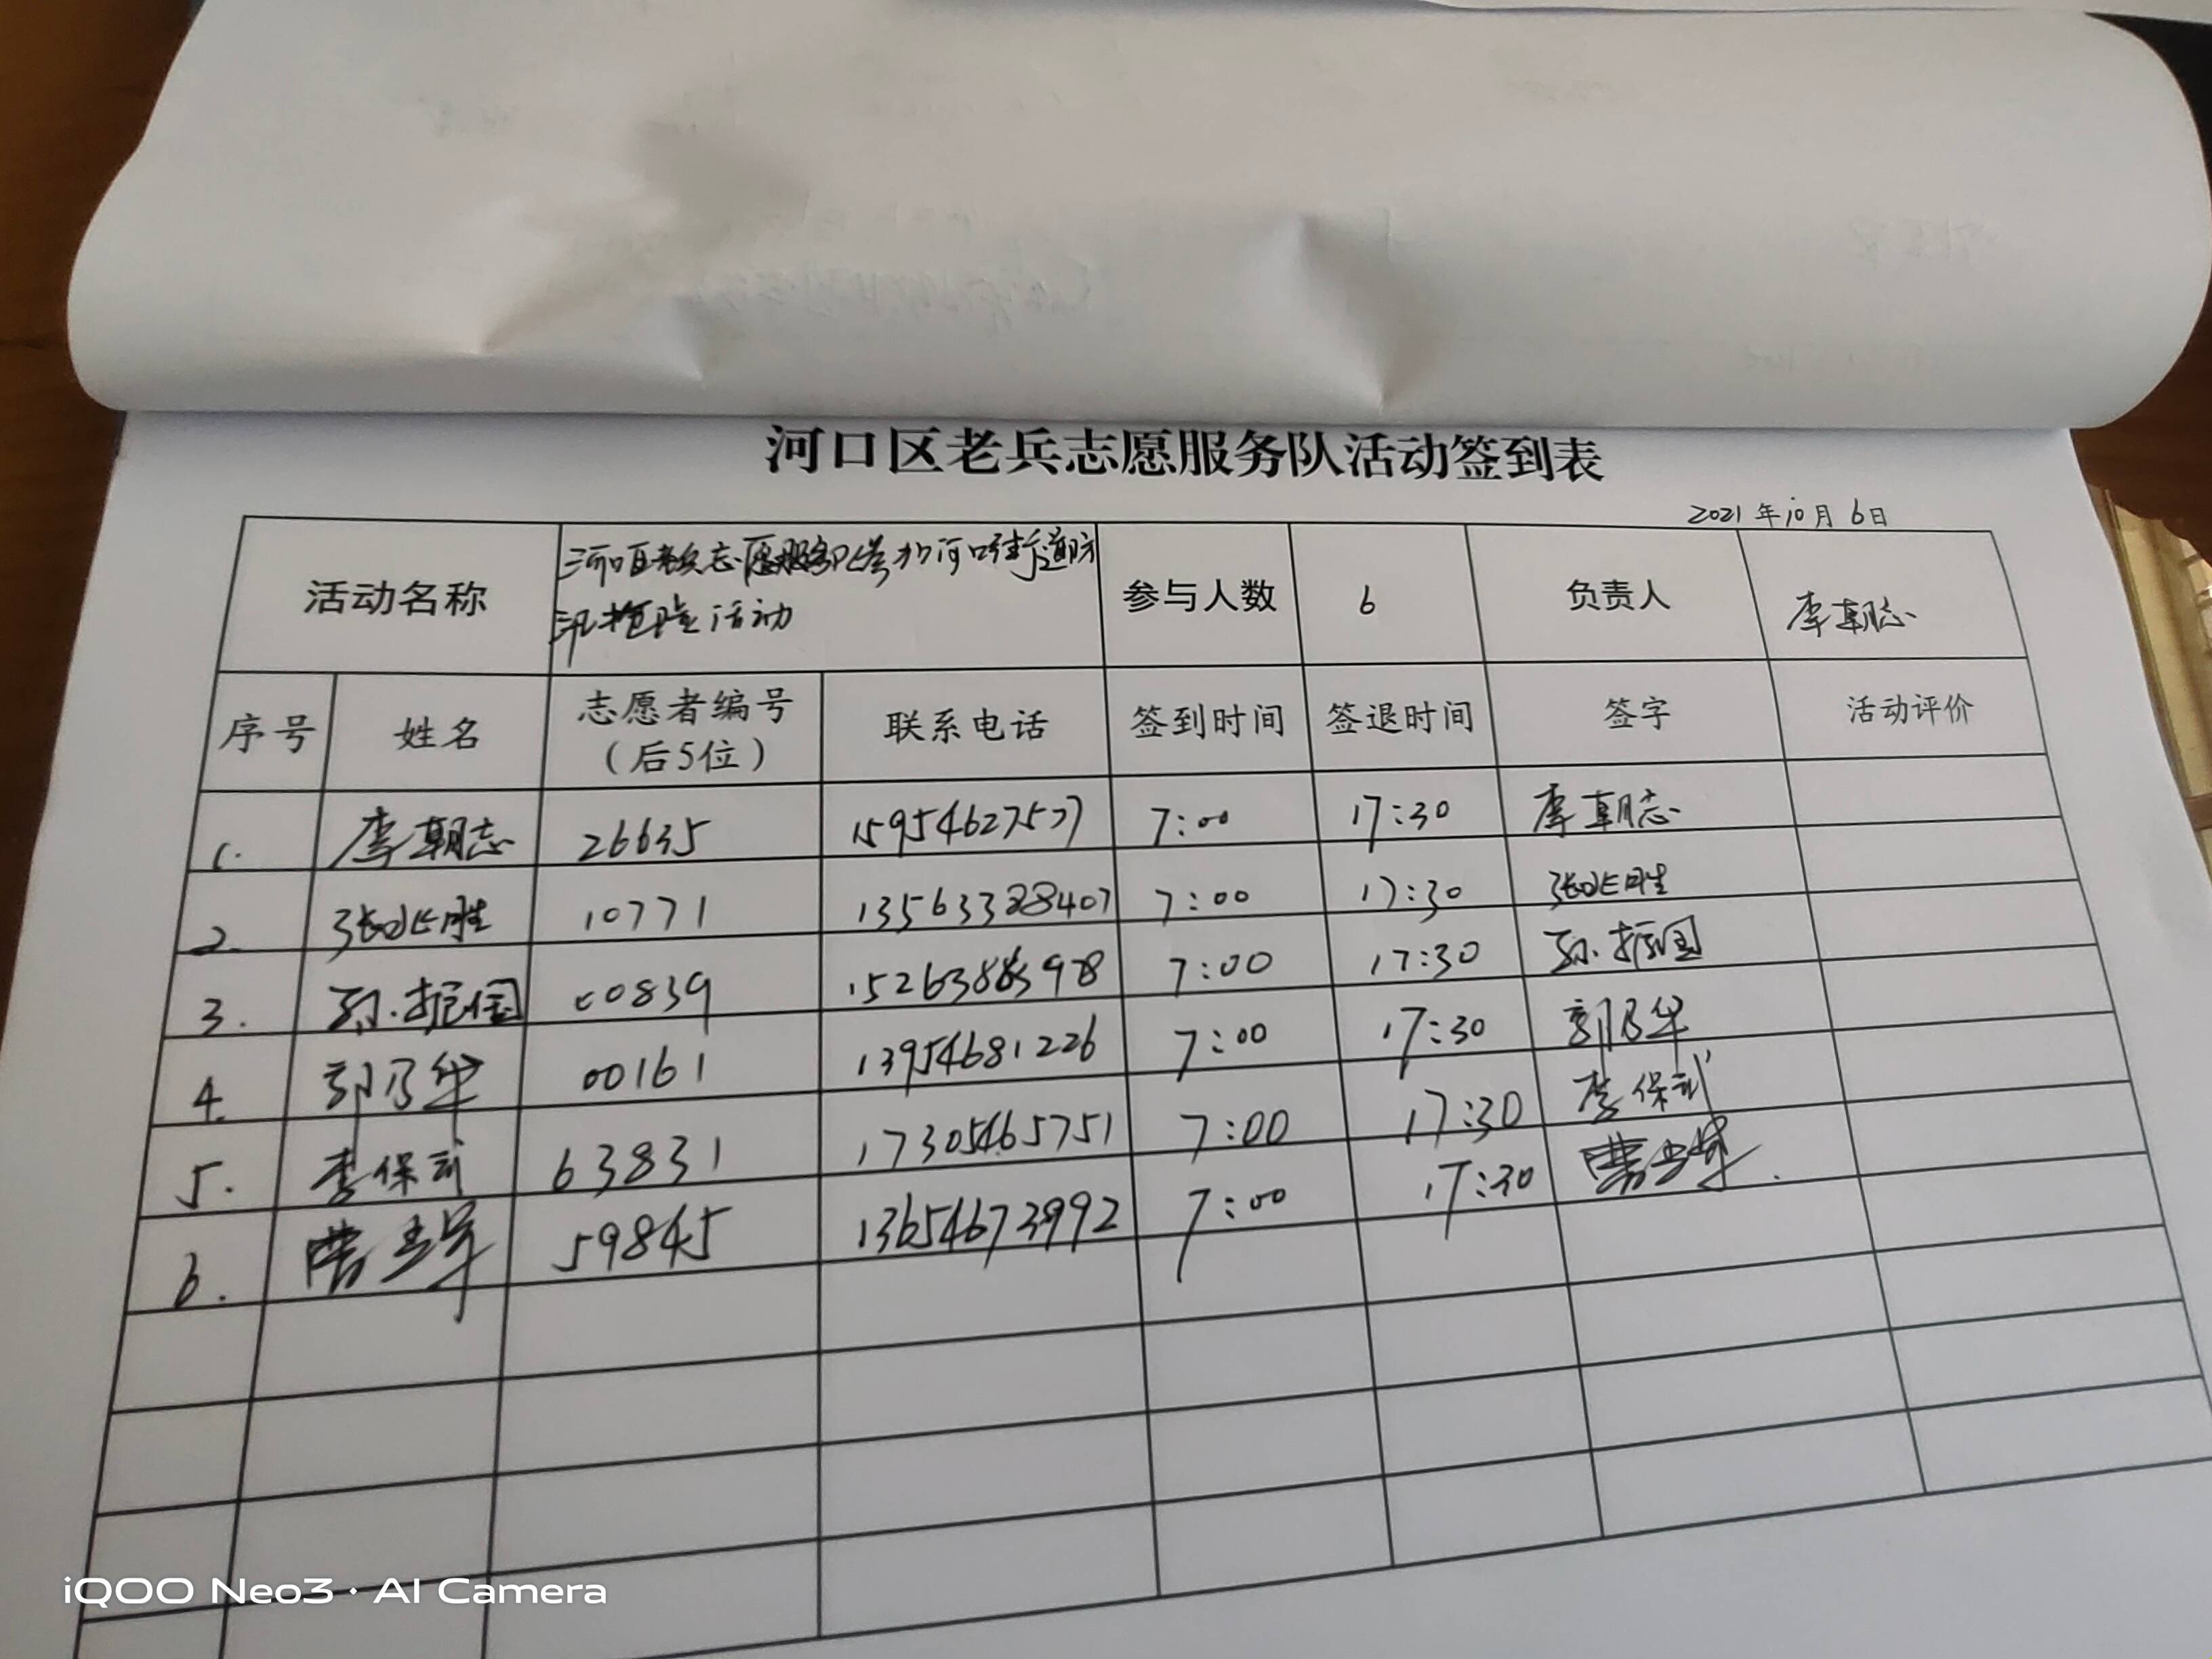 河口区老兵志愿服务队活动签到表
2021年10月6日
活动名称 河口区老兵志愿服务队参加河口街道防汛抢险活动 参与人数 6 负责人 李朝志
序号 姓名 志愿者编号（后5位） 联系电话 签到时间 签退时间 签字 活动评价
1. 李朝志 26635 15954627577 7:00 17:30 李朝志
2. 张胜 10771 7:00 17:30 张胜
3. 孙振国 00839 7:00 17:30 孙振国
4. 郭乃华 00161 13954681226 7:00 17:30 郭乃华
5. 李保 63831 17305465751 7:00 17:30 李保
6. 曹军 59845 13654673992 7:00 17:30 曹军
iQOO Neo3 · AI Camera